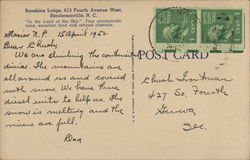 Sunshine Lodge, 413 Fourth Avenue West,
Hendersonville, N. C.
"In the Land of the Sky." Fine accommoda-
tions, excellent food and refined clientele.
POST CARD
Glacier N.P. 15 April 1952
Dear Chuck,
We are climbing the continental
divide. The mountains are
all around us and covered
with snow. We have three
diesel units to help us. The
snow is melting and the
rivers are full.
Dad
Chuck
427 So. Fourth
Geneva